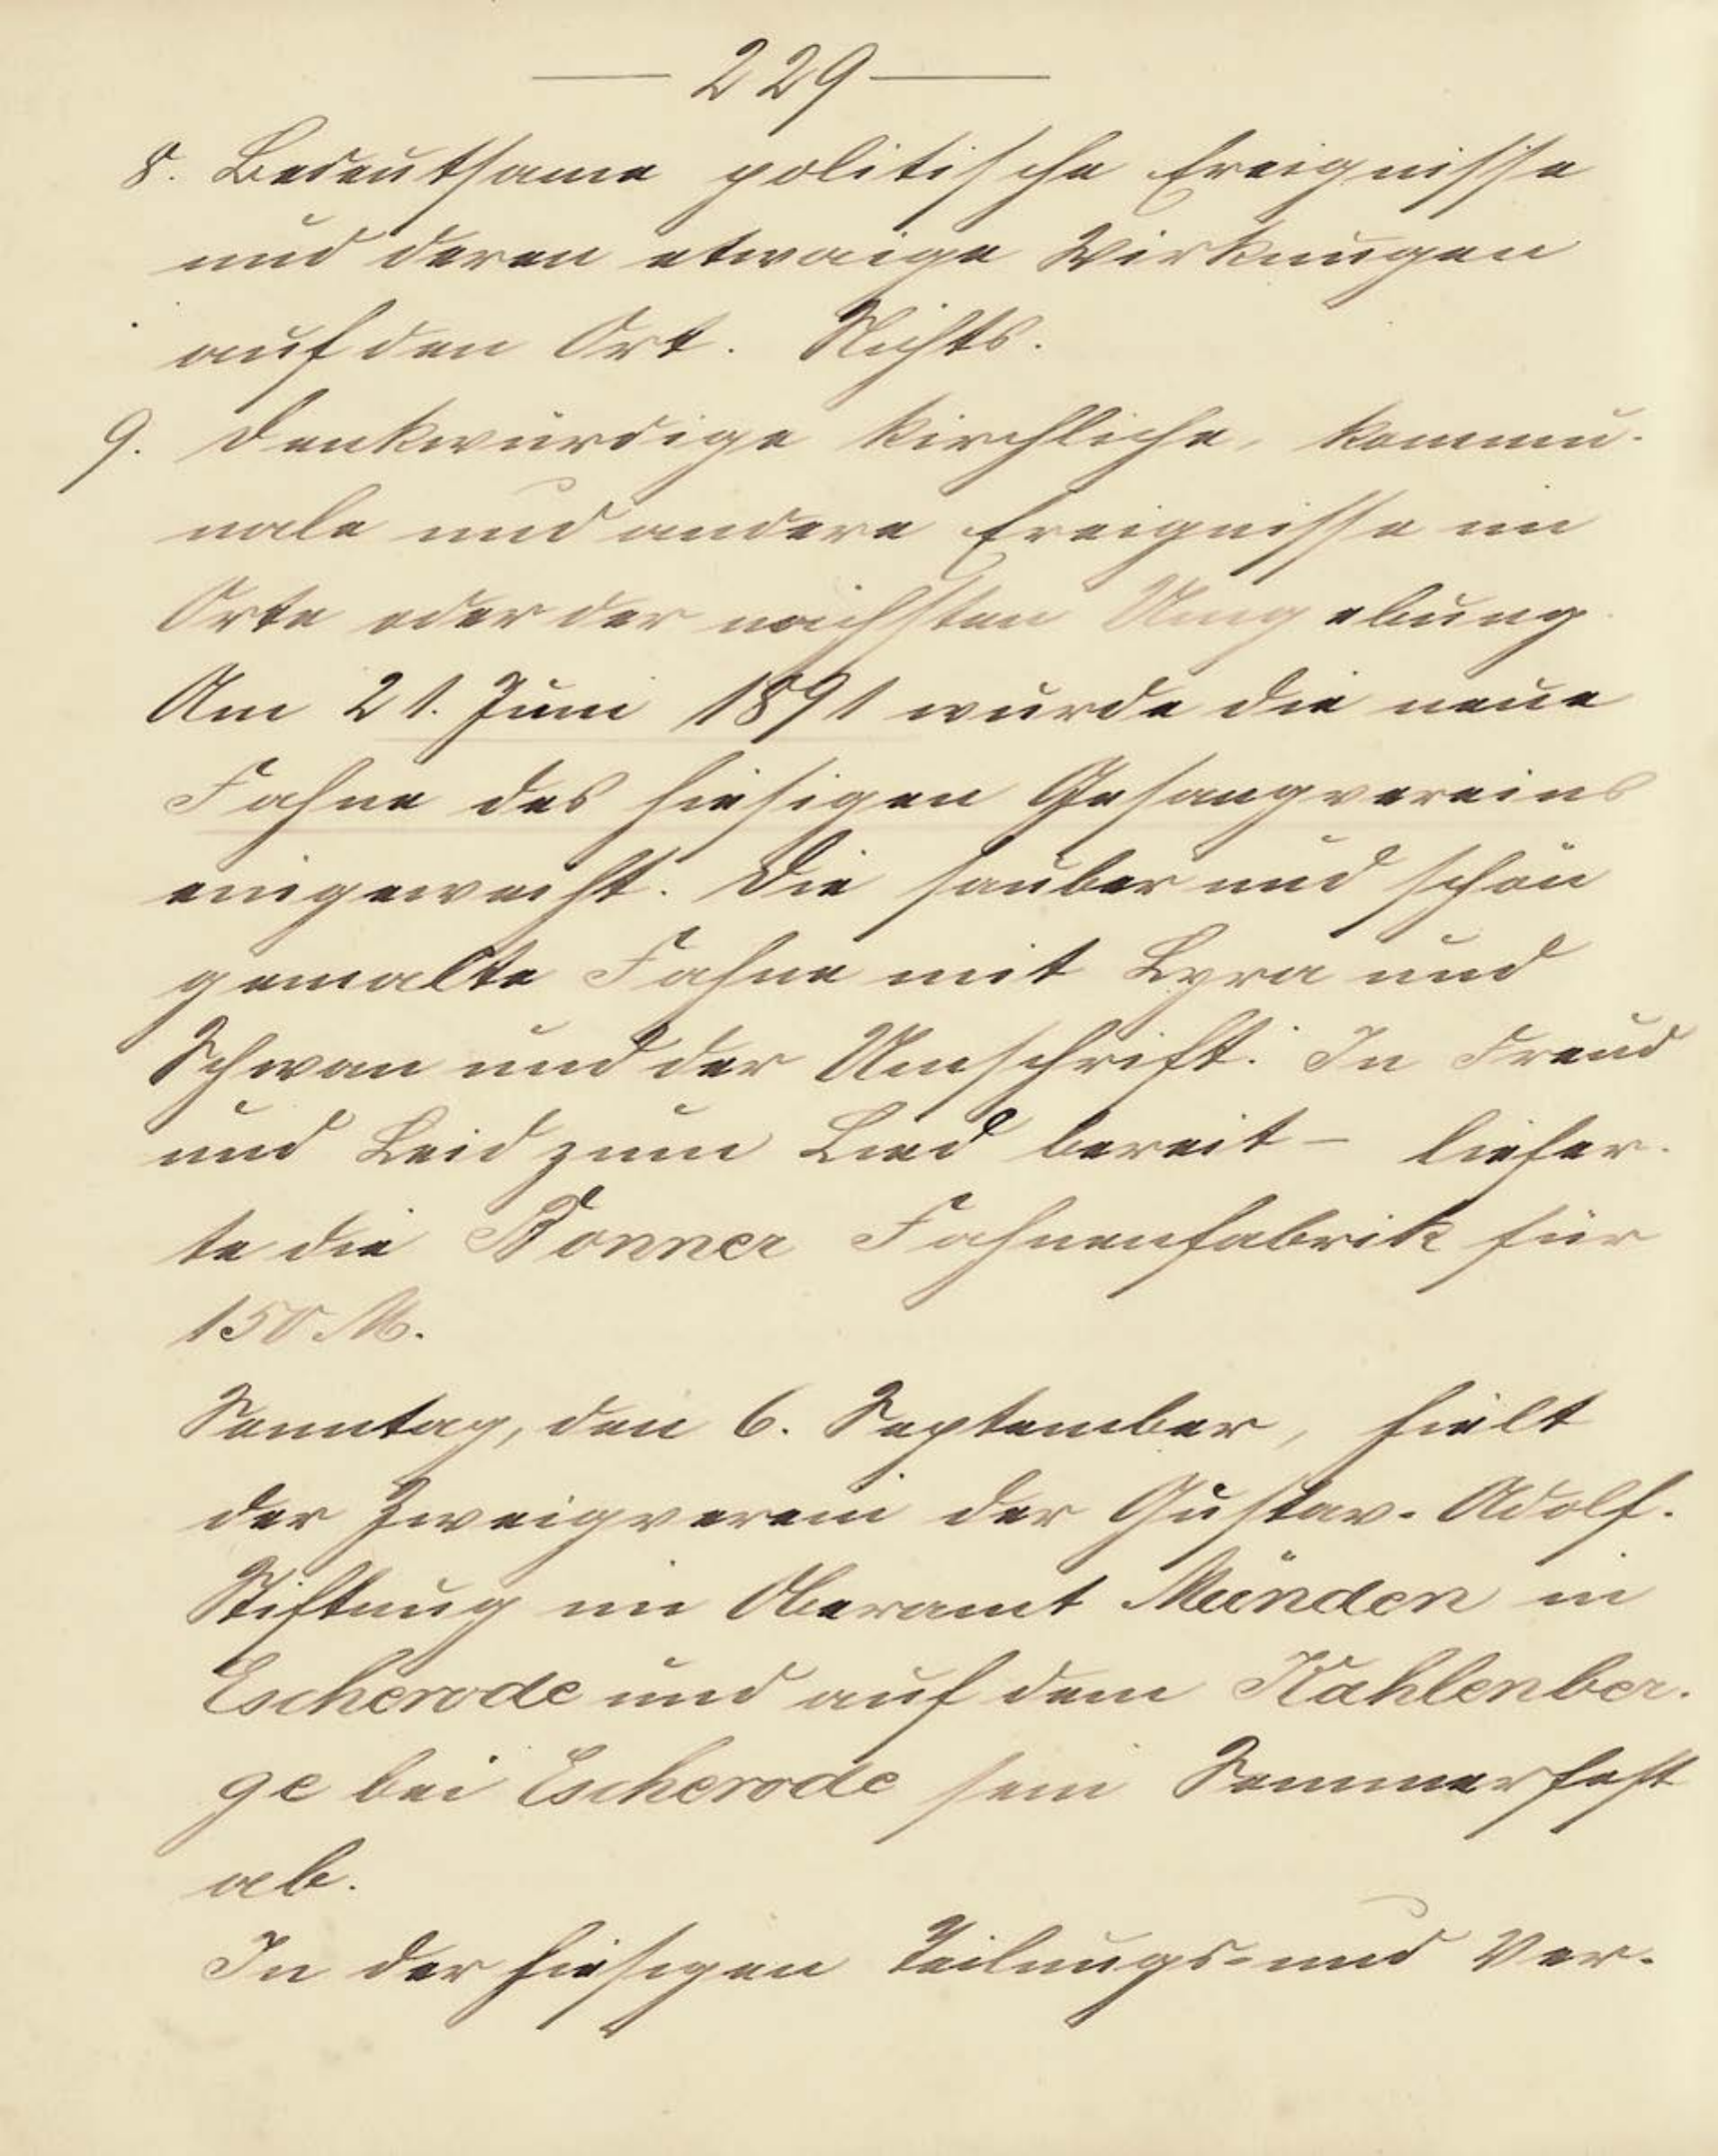 — 229 —
8. Bedeutsame politische Ereignisse
und deren etwaige Wirkungen
auf den Ort. Nichts.
9. Denkwürdige kirchliche, kommu-
nale und andere Ereignisse im
Orte oder der nächsten Umgebung.
Am 21. Juni 1891 wurde die neue
Fahne des hiesigen Gesangvereins
eingeweiht. Die sauber und schön
gemalte Fahne mit Lyra und
Schwan und der Umschrift: In Freud
und Leid zum Lied bereit – liefer-
te die Bonner Fahnenfabrik für
150 M.
Sonntag, den 6. September, hielt
der Zweigverein der Gustav-Adolf-
Stiftung im Oberamt Münden in
Escherode und auf dem Kahlenber-
ge bei Escherode sein Sommerfest
ab.
In der hiesigen Teilungs- und Ver-